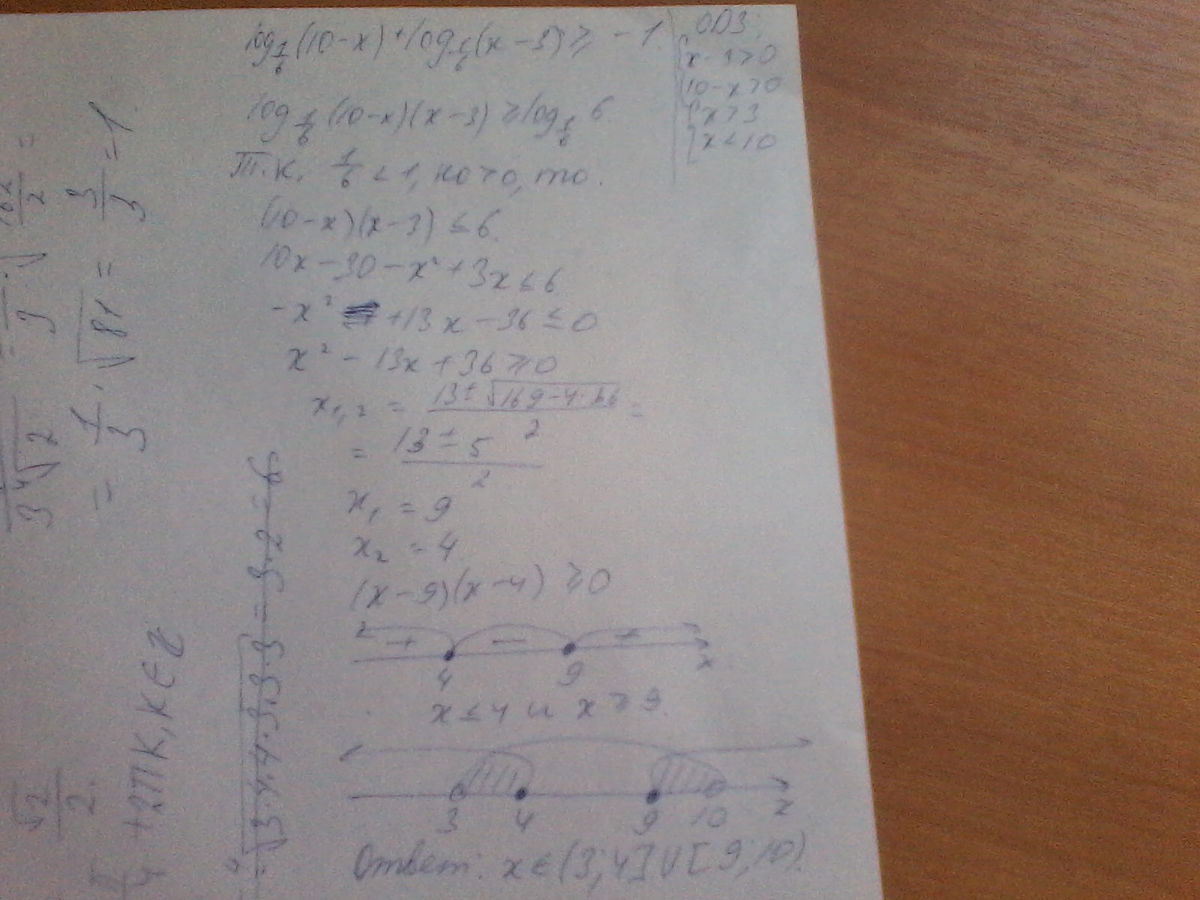 log_{1/6}(10-x)+log_{1/6}(x-3)≥-1.
ОДЗ:
{x-3>0
{10-x>0
{x>3
{x<10
log_{1/6}(10-x)(x-3)≥log_{1/6} 6
Т.К. 1/6 <1, но >0, то.
(10-x)(x-3)≤6.
10x-30-x²+3x≤6
-x² +13x-36≤0
x²-13x+36≥0
x_{1,2} = (13±√(169-4·36))/2 =
= (13±5)/2
x₁ = 9
x₂ = 4
(x-9)(x-4)≥0
+ - +
4 9 x
x≤4 и x≥9.
3 4 9 10 x
Ответ: x∈(3;4]∪[9;10).
= 1/3 · √81 = 9/3 = 1.
3 ⁴√2
√2/2
+2ПК, К∈Z